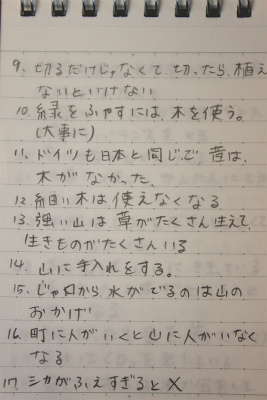 9. 切るだけじゃなくて切ったら、植え
ないといけない
10. 緑をふやすには、木を使う。
(大事に)
11. ドイツも日本と同じで、昔は、
木がなかった
12 細い木は使えなくなる
13. 強い山は草がたくさん生えて、
生きものがたくさんいる
14. 山に手入れをする。
15. じゃ口から水がでるのは山の
おかげ
16. 町に人がいくと山に人がいなく
なる
17. シカがふえすぎると×